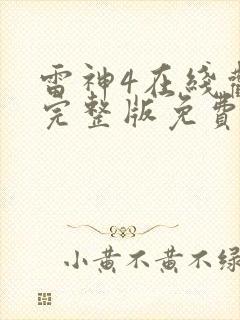 雷神4在线
完整版免費
小黄不黄不绿